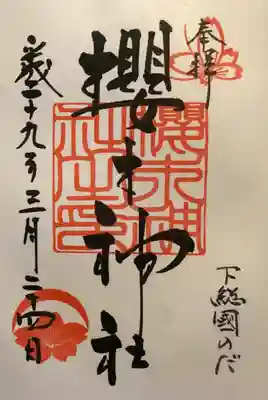 奉拝
下総國のだ
櫻木神社
櫻木神
社之印
二十九年三月二十四日